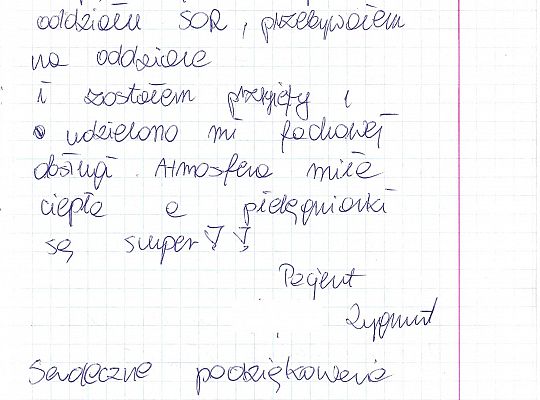 oddziału SOR, przebywałem
na oddziale
i zostałem przyjęty i
udzielono mi fachowej
obsługi. Atmosfera miła
ciepła a pielęgniarki
są super!!
Pacjent
Zygmunt
Serdeczne podziękowania